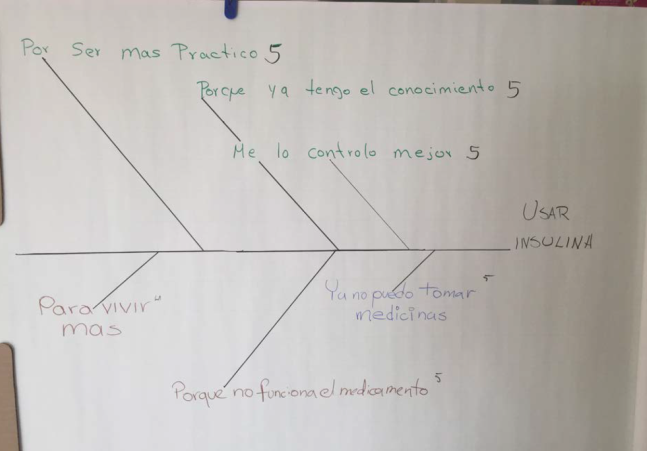 Por Ser mas Practico 5
Porque ya tengo el conocimiento 5
Me lo controlo mejor 5
USAR
INSULINA
Para vivir
mas
Ya no puedo tomar 5
medicinas
Porque no funciona el medicamento 5